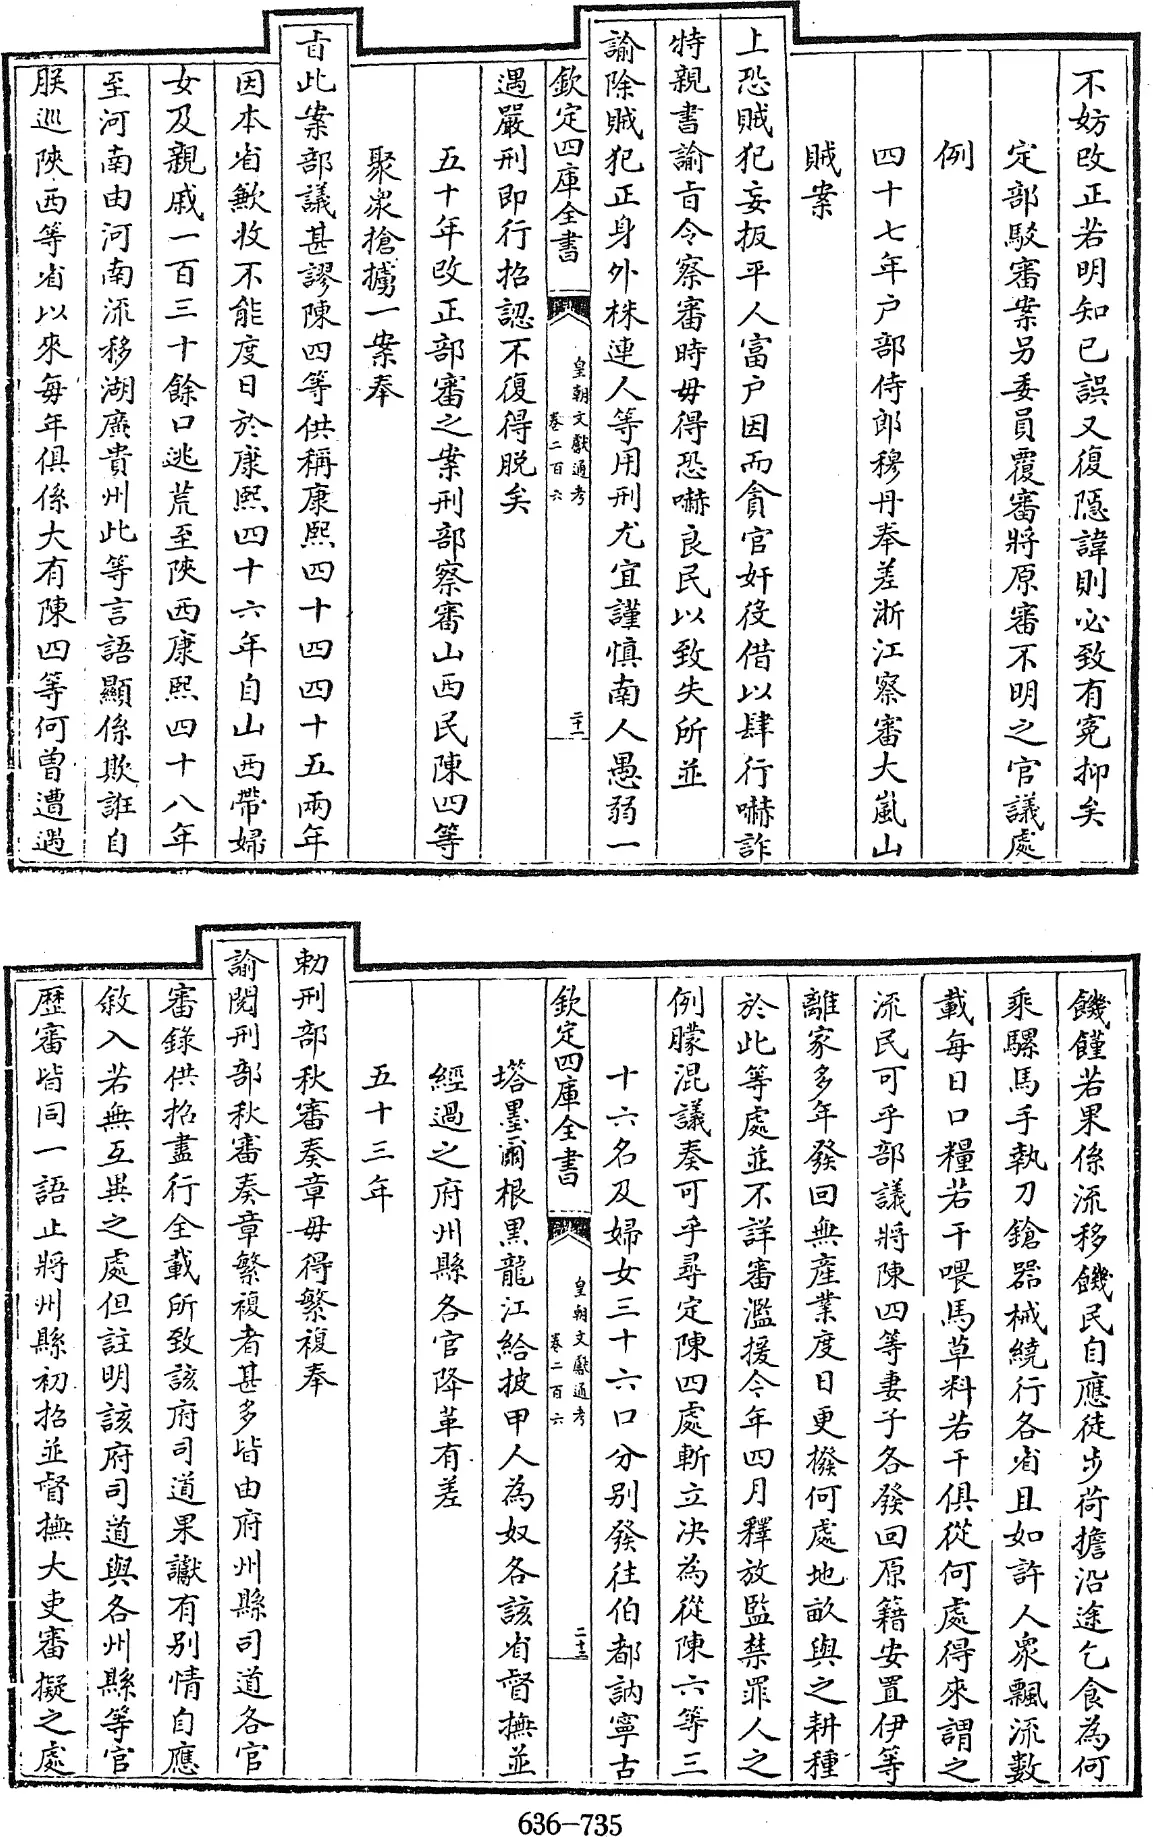 不妨改正若明知已誤又復隱諱則必致有冤抑矣
定部駁審案另委員覆審將原審不明之官議處
例
四十七年户部侍郎穆丹奉差浙江察審大嵐山
賊案
上恐賊犯妄扳平人富户因而貪官奸役借以肆行嚇詐
特親書諭旨令察審時毋得恐嚇良民以致失所並
諭除賊犯正身外株連人等用刑尤宜謹慎南人愚弱一
欽定四庫全書
皇朝文獻通考
卷二百六
二十二
遇嚴刑即行招認不復得脱矣
五十年改正部審之案刑部察審山西民陳四等
聚衆搶擄一案奉
旨此案部議甚謬陳四等供稱康熙四十四四十五兩年
因本省歉收不能度日於康熙四十六年自山西帶婦
女及親戚一百三十餘口逃荒至陝西康熙四十八年
至河南由河南流移湖廣貴州此等言語顯係欺誑自
朕巡陝西等省以來每年俱係大有陳四等何曾遭遇
饑饉若果係流移饑民自應徒步荷擔沿途乞食為何
乘騾馬手執刀鎗器械繞行各省且如許人衆飄流數
載每日口糧若干喂馬草料若干俱從何處得來謂之
流民可乎部議將陳四等妻子各發回原籍安置伊等
離家多年發回無產業度日更撥何處地畝與之耕種
於此等處並不詳審濫援今年四月釋放監禁罪人之
例朦混議奏可乎尋定陳四處斬立決為從陳六等三
十六名及婦女三十六口分别發往伯都訥寧古
欽定四庫全書
皇朝文獻通考
卷二百六
二十三
塔墨爾根黑龍江給披甲人為奴各該省督撫並
經過之府州縣各官降革有差
五十三年
勅刑部秋審奏章毋得繁複奉
諭閱刑部秋審奏章繁複者甚多皆由府州縣司道各官
審錄供招盡行全載所致該府司道果讞有别情自應
敘入若無互異之處但註明該府司道與各州縣等官
歷審皆同一語止將州縣初招並督撫大吏審擬之處
636-735